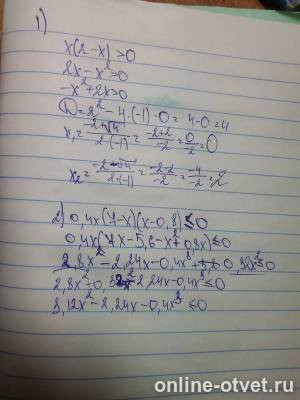 1)
x(2-x)>0
2x-x²>0
-x²+2x>0
D=2²-4·(-1)·0=4-0=4
x₁=(-2+√4)/(2·(-1))=(-2+2)/(-2)=0/(-2)=0
x₂=(-2-√4)/(2·(-1))=(-2-2)/(-2)=(-4)/(-2)=2
2) 0,4x(7-x)(x-0,8)≤0
0,4x(7x-5,6-x²+0,8x)≤0
2,8x²-2,24x-0,4x³+ 0,32x²≤0
2,8x²+0,32x²-2,24x-0,4x³≤0
3,12x²-2,24x-0,4x³≤0
online-otvet.ru